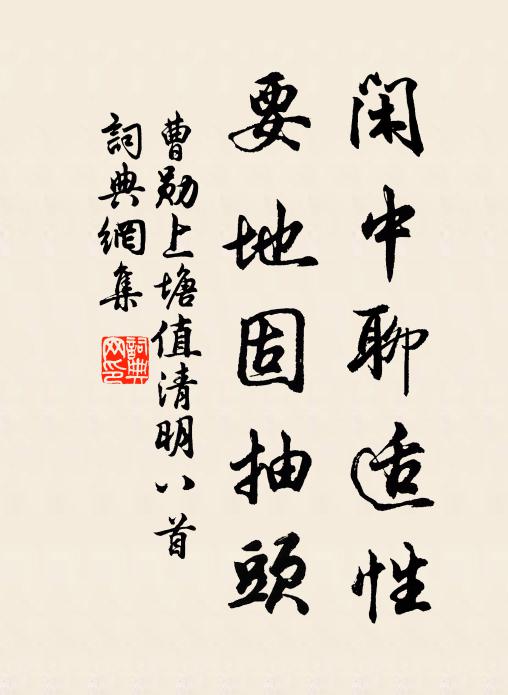 闲中聊适性
要地固抽頭
曹勋上塘值清明八首
詞典網集
詞典网印